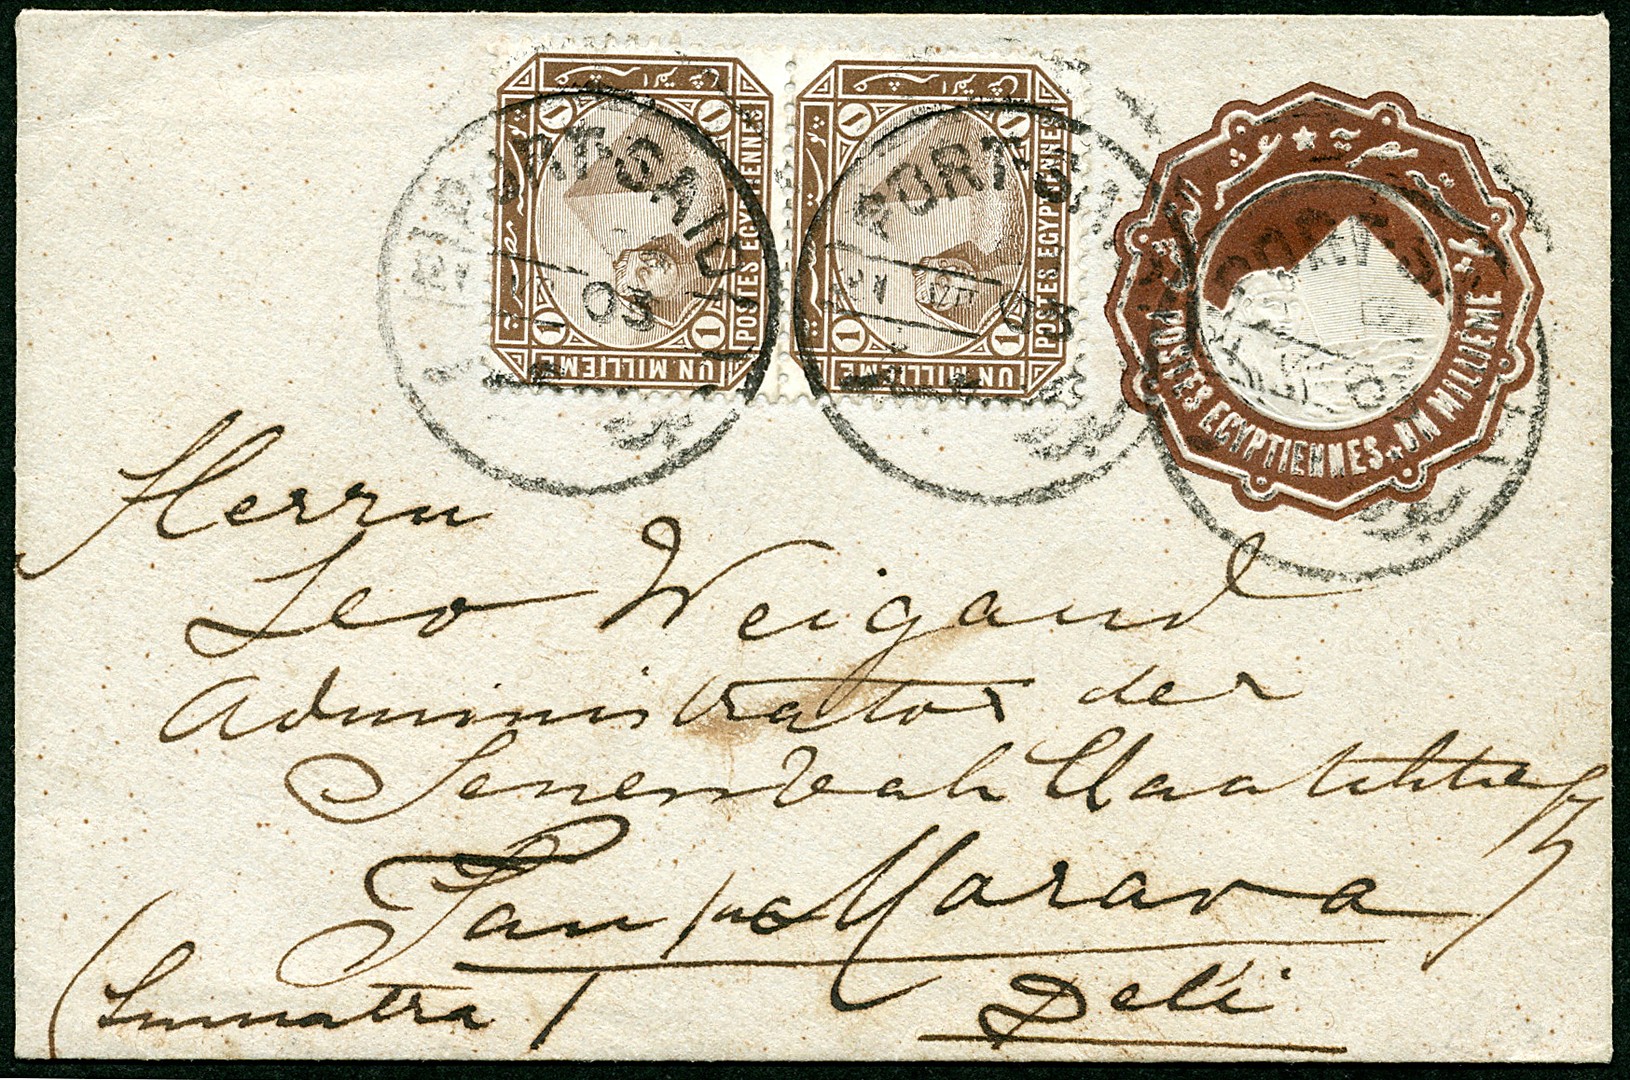 UN MILLIEME
POSTES EGYPTIENNES
1 1
UN MILLIEME
POSTES EGYPTIENNES
1 1
POSTES EGYPTIENNES. UN MILLIEME
PORT-SAID
03
PORT-SAID
VII 03
PORT-S
Herrn
Leo Weigand
Administrator der
Maatschy
Morava
Deli
(Sumatra)